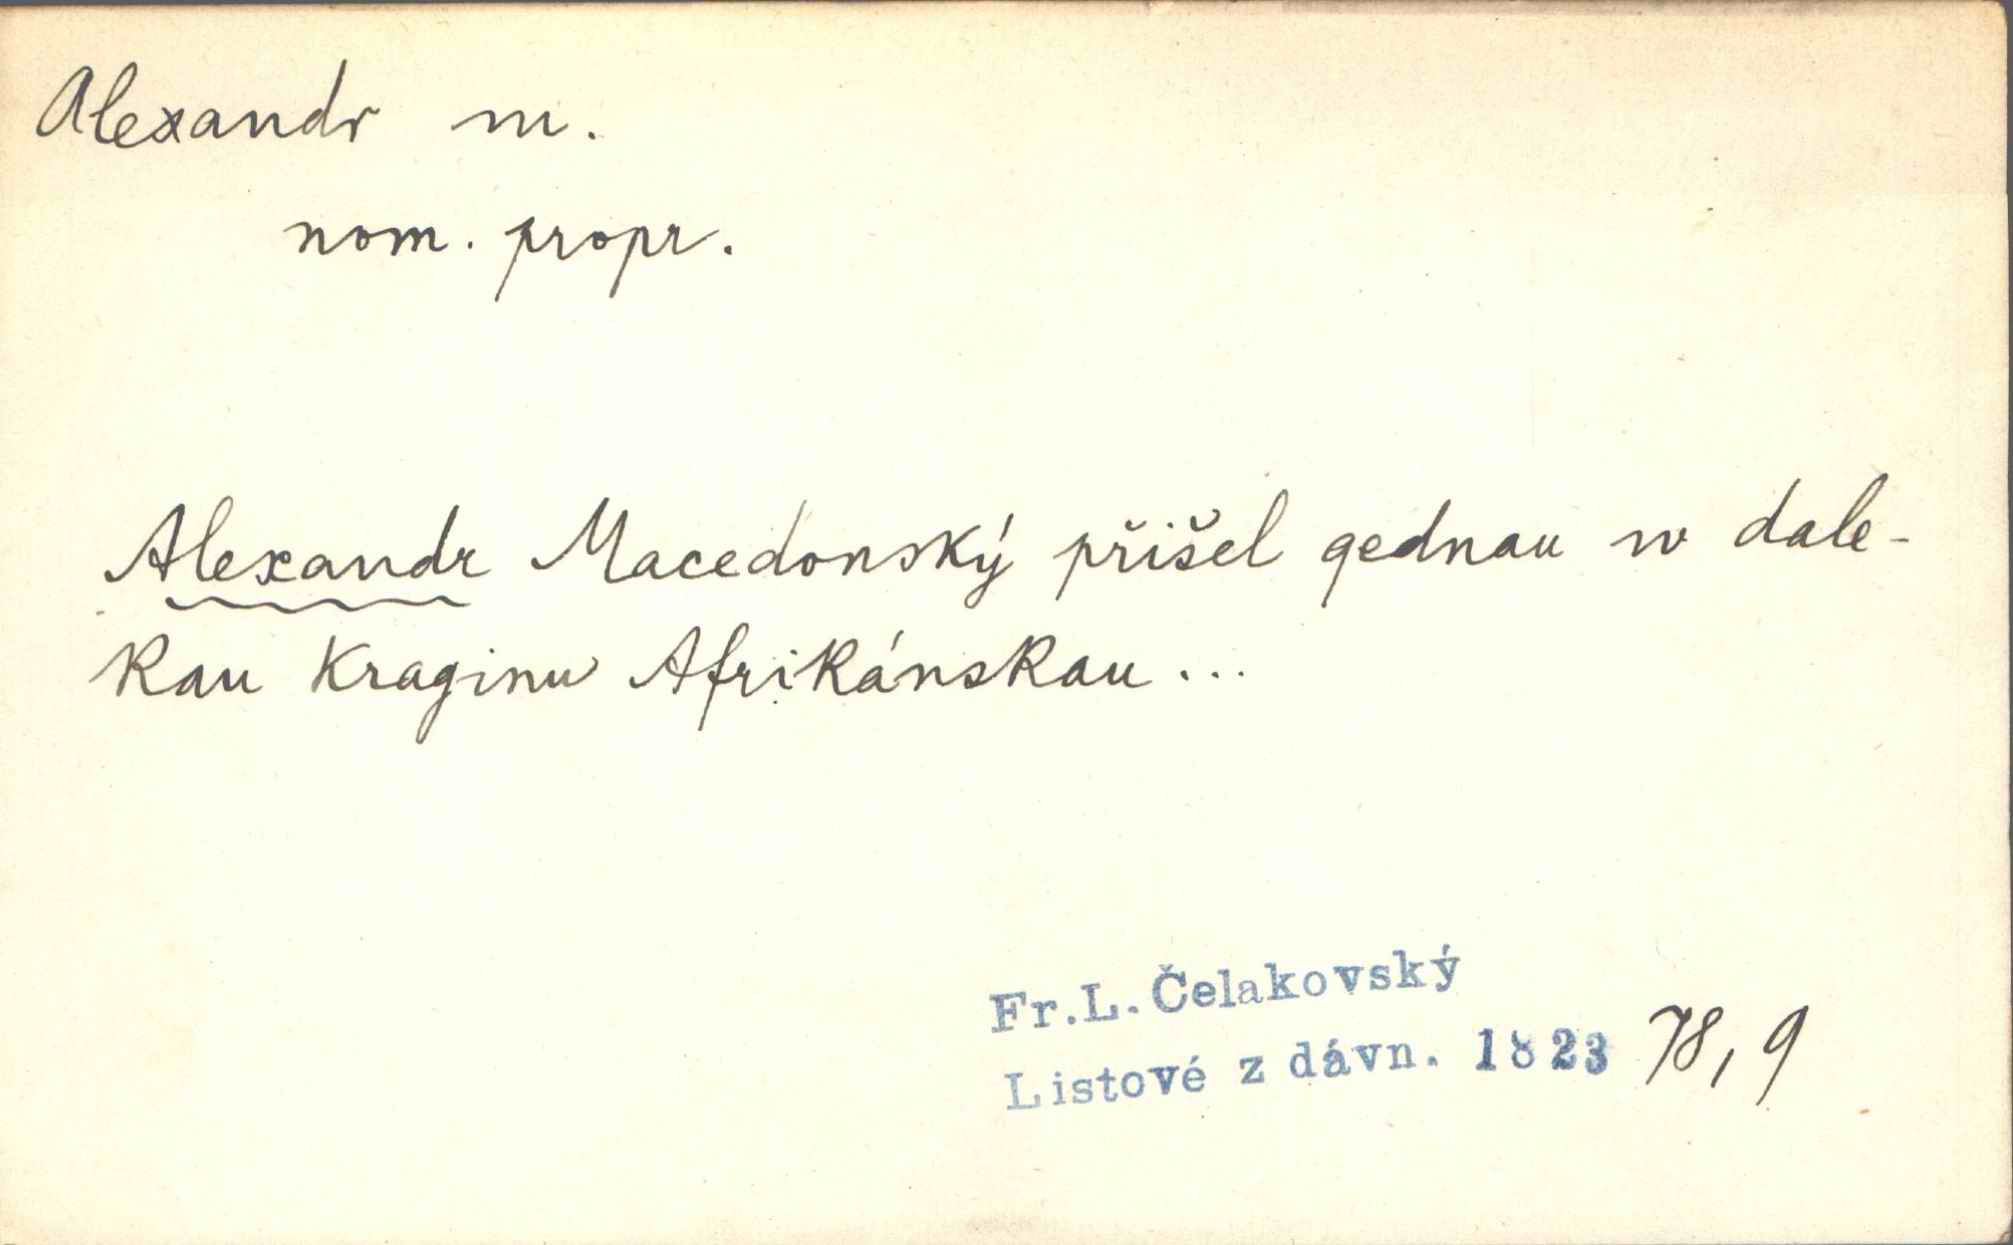 Alexandr m.
nom. propr.
Alexandr Macedonský přišel gednau w dale-
kau kraginu Afrikánskau...
Fr.L.Čelakovský
Listové z dávn. 1823 78,9